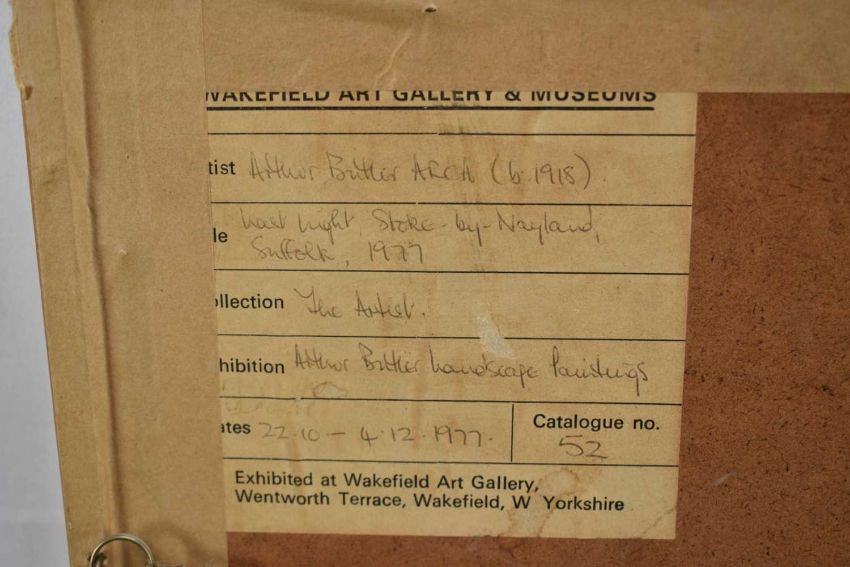 WAKEFIELD ART GALLERY & MUSEUMS
tist Arthur Butler ARCA (b. 1918).
le Last light, Stoke-by-Nayland,
Suffolk, 1977
llection The Artist.
hibition Arthur Butler Landscape Paintings
ates 22.10 - 4.12.1977.
Catalogue no.
52
Exhibited at Wakefield Art Gallery,
Wentworth Terrace, Wakefield, W Yorkshire